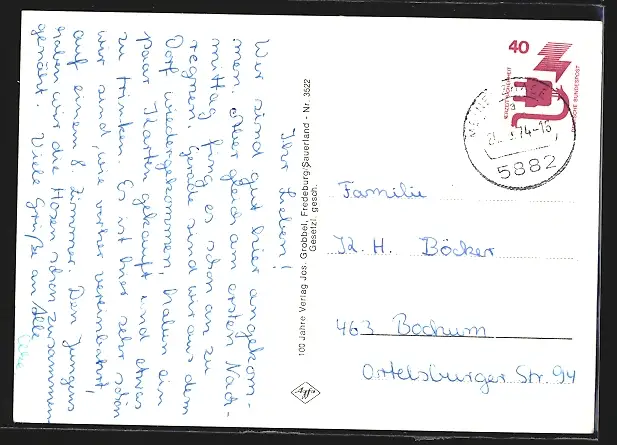 Ihr Lieben!
Wir sind gut hier angekom-
men. Aber gleich am ersten Nach-
mittag fing es schon an zu
regnen. Gerade sind wir aus dem
Dorf wiedergekommen, haben ein
paar Karten gekauft und etwas
zu trinken. Es ist hier sehr schön
wir sind, wie vorher vereinbart,
auf einem 8. Zimmer. Den Jungens
haben wir die Hosen schon zusammen
genäht. Viele Grüße an Alle
100 Jahre Verlag Jos. Grobbel, Fredeburg/Sauerland - Nr. 3522
Gesetzl. gesch.
Agfa
40
DEUTSCHE BUNDESPOST
74-15
5882
Familie
K. H. Böcker
463 Bochum
Ortelsburger Str. 94